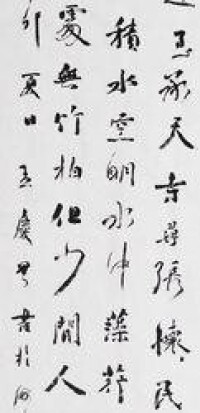 至承天寺尋張懷民
積水空明水中藻荇
處無竹柏但少間人
卯夏日王慶書於